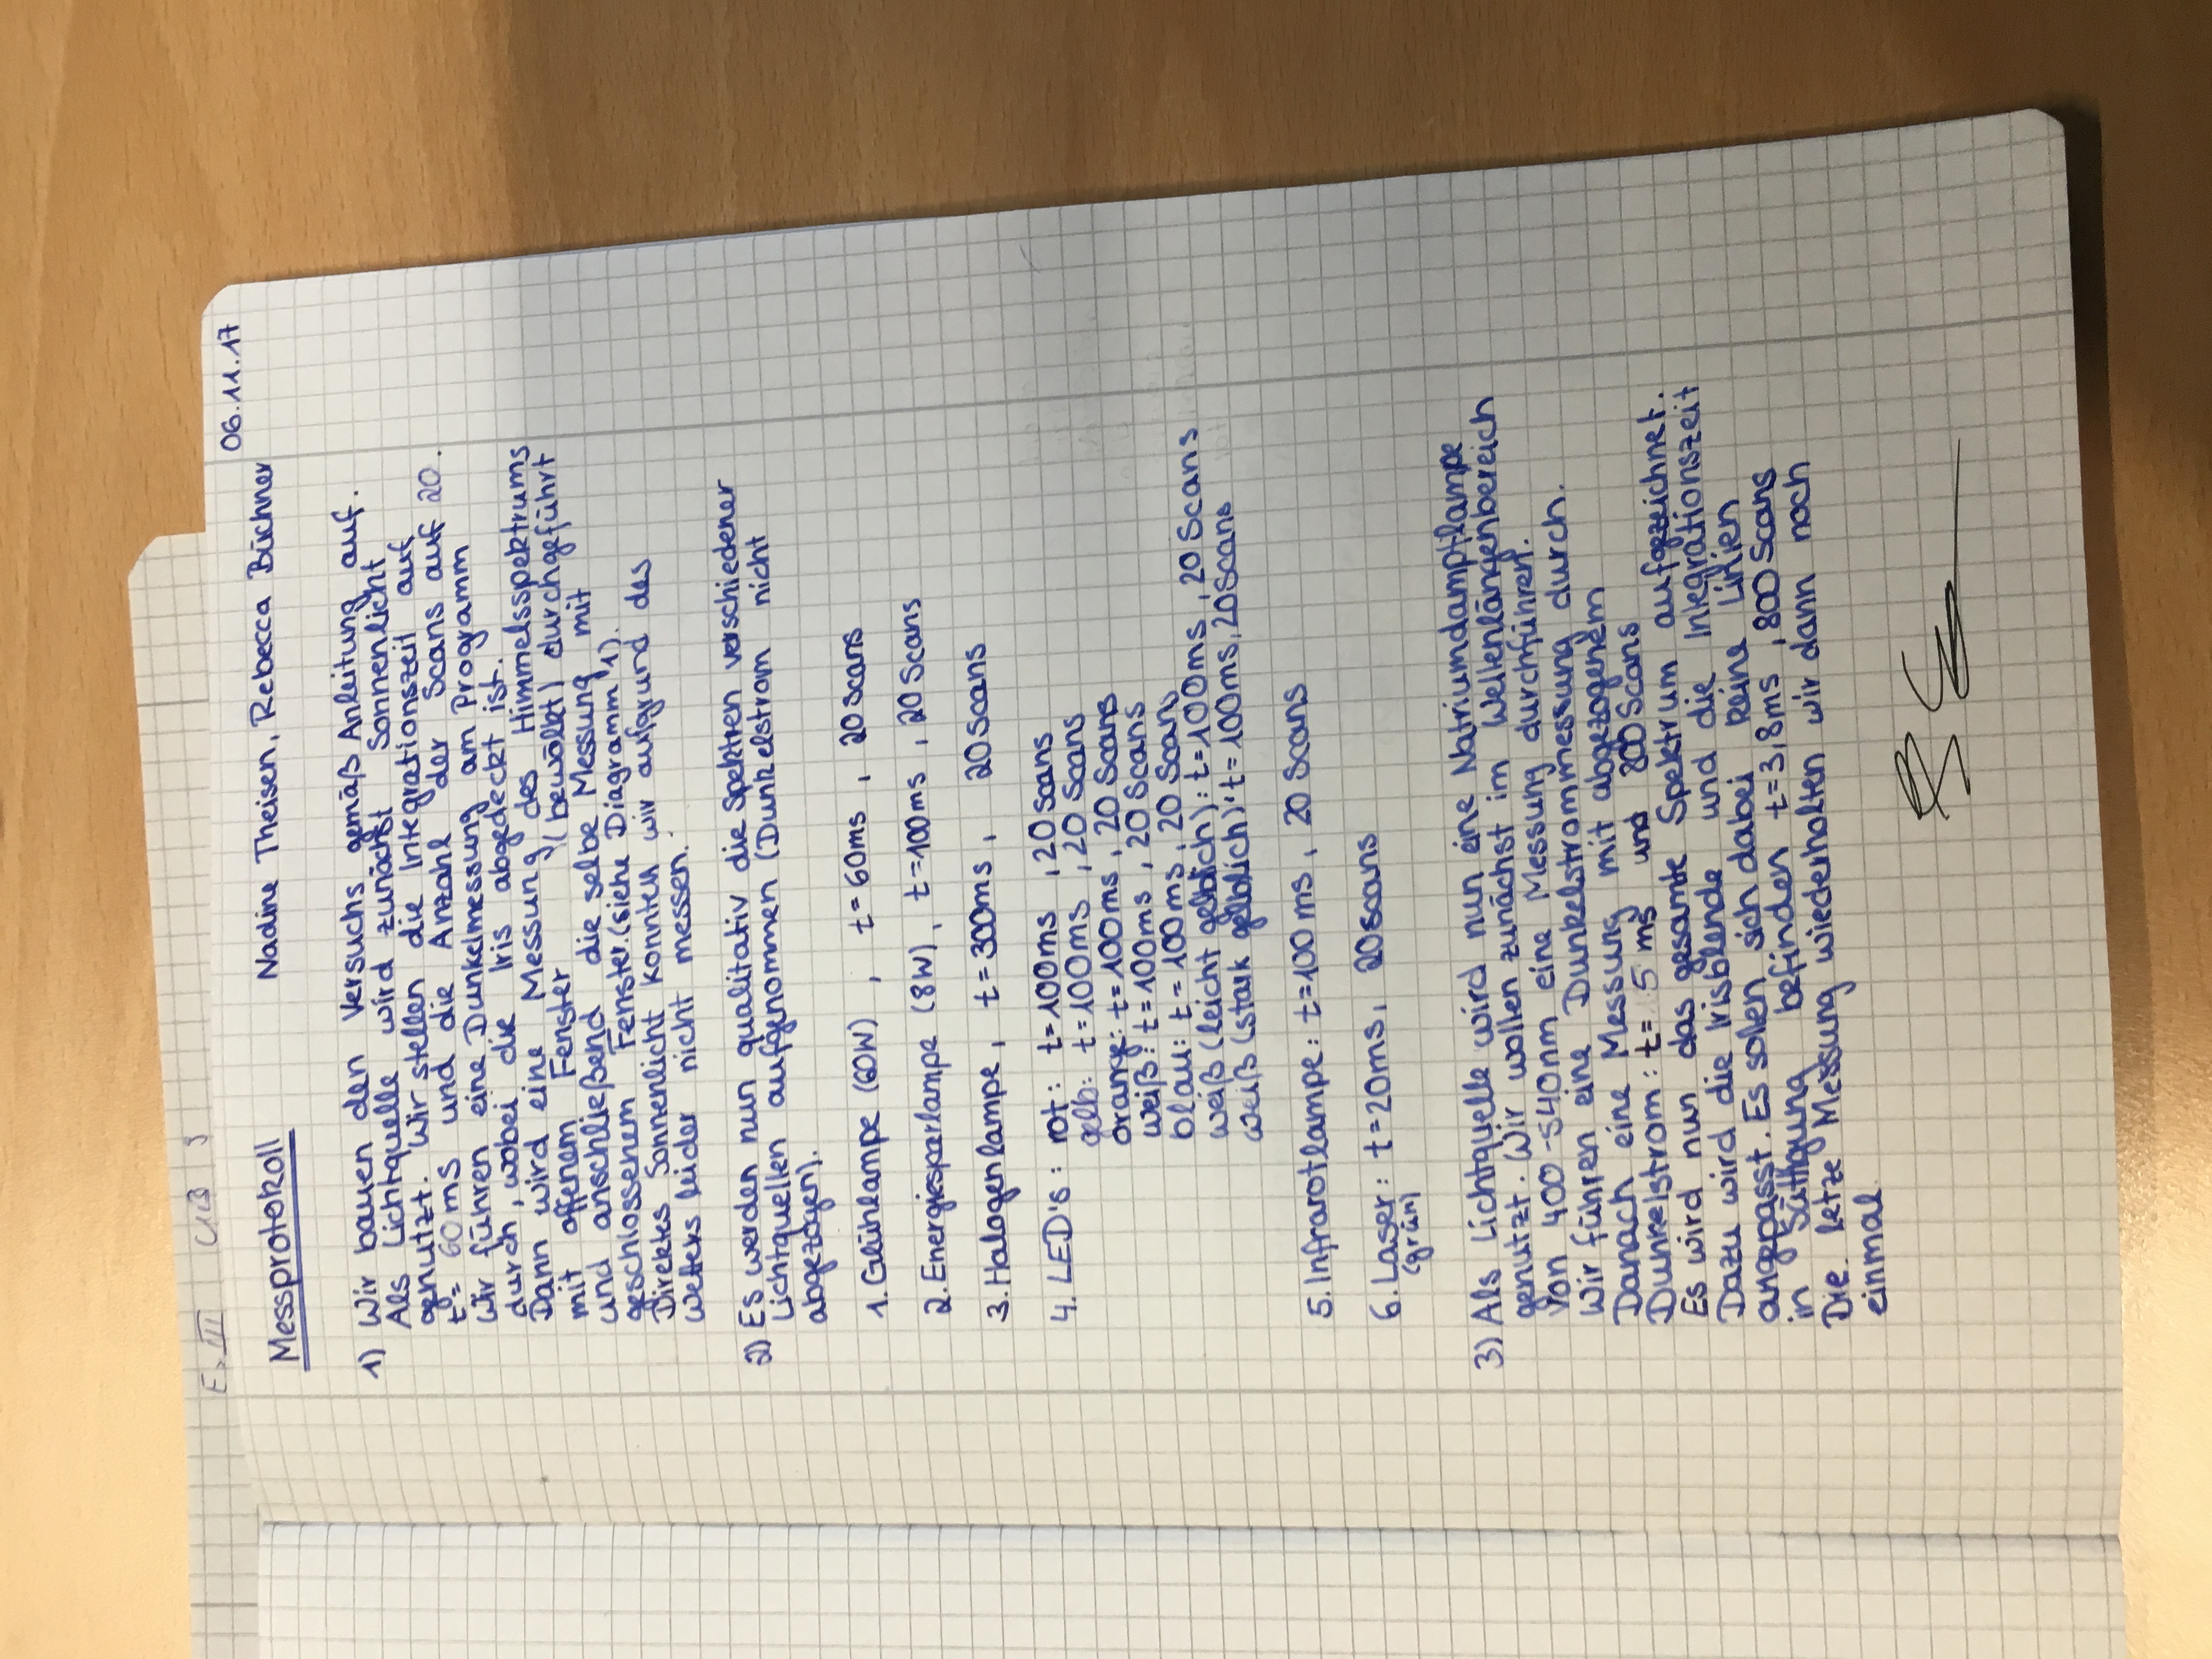 Ex III ÜB 3
06.11.17
Messprotokoll Nadine Theisen, Rebecca Büchner
1) Wir bauen den Versuchs gemäß Anleitung auf.
Als Lichtquelle wird zunächst Sonnenlicht
genutzt. Wir stellen die Integrationszeit auf
t = 60ms und die Anzahl der Scans auf 20.
Wir führen eine Dunkelmessung am Programm
durch, wobei die Iris abgedeckt ist.
Dann wird eine Messung des Himmelsspektrums
mit offenem Fenster (bewölkt) durchgeführt
und anschließend die selbe Messung mit
geschlossenem Fenster.(siehe Diagramm 1).
Direktes Sonnenlicht konnten wir aufgrund des
Wetters leider nicht messen.
2) Es werden nun qualitativ die Spektren verschiedener
Lichtquellen aufgenommen (Dunkelstrom nicht
abgezogen).
1. Glühlampe (60W) , t=60ms , 20 Scans
2. Energiesparlampe (8W), t=100ms , 20 Scans
3. Halogenlampe, t=300ms, 20 Scans
4. LED's: rot: t=100ms , 20 Scans
gelb: t=100ms , 20 Scans
orange: t=100ms, 20 Scans
weiß: t=100ms , 20 Scans
blau: t=100ms, 20 Scans
weiß (leicht gelblich): t=100ms, 20 Scans
weiß (stark gelblich): t=100ms, 20 Scans
5. Infrarotlampe: t=100ms, 20 Scans
6. Laser: t=20ms, 20 scans
(grün)
3) Als Lichtquelle wird nun eine Natriumdampflampe
genutzt. Wir wollen zunächst im Wellenlängenbereich
von 400-540nm eine Messung durchführen.
Wir führen eine Dunkelstrommessung durch.
Danach eine Messung mit abgezogenem
Dunkelstrom: t= 5 ms und 800 Scans
Es wird nun das gesamte Spektrum aufgezeichnet.
Dazu wird die Irisblende und die Integrationszeit
angepasst. Es sollen sich dabei keine Linien
in Sättigung befinden t=3,8ms , 800 Scans
Die letze Messung wiederholten wir dann noch
einmal.